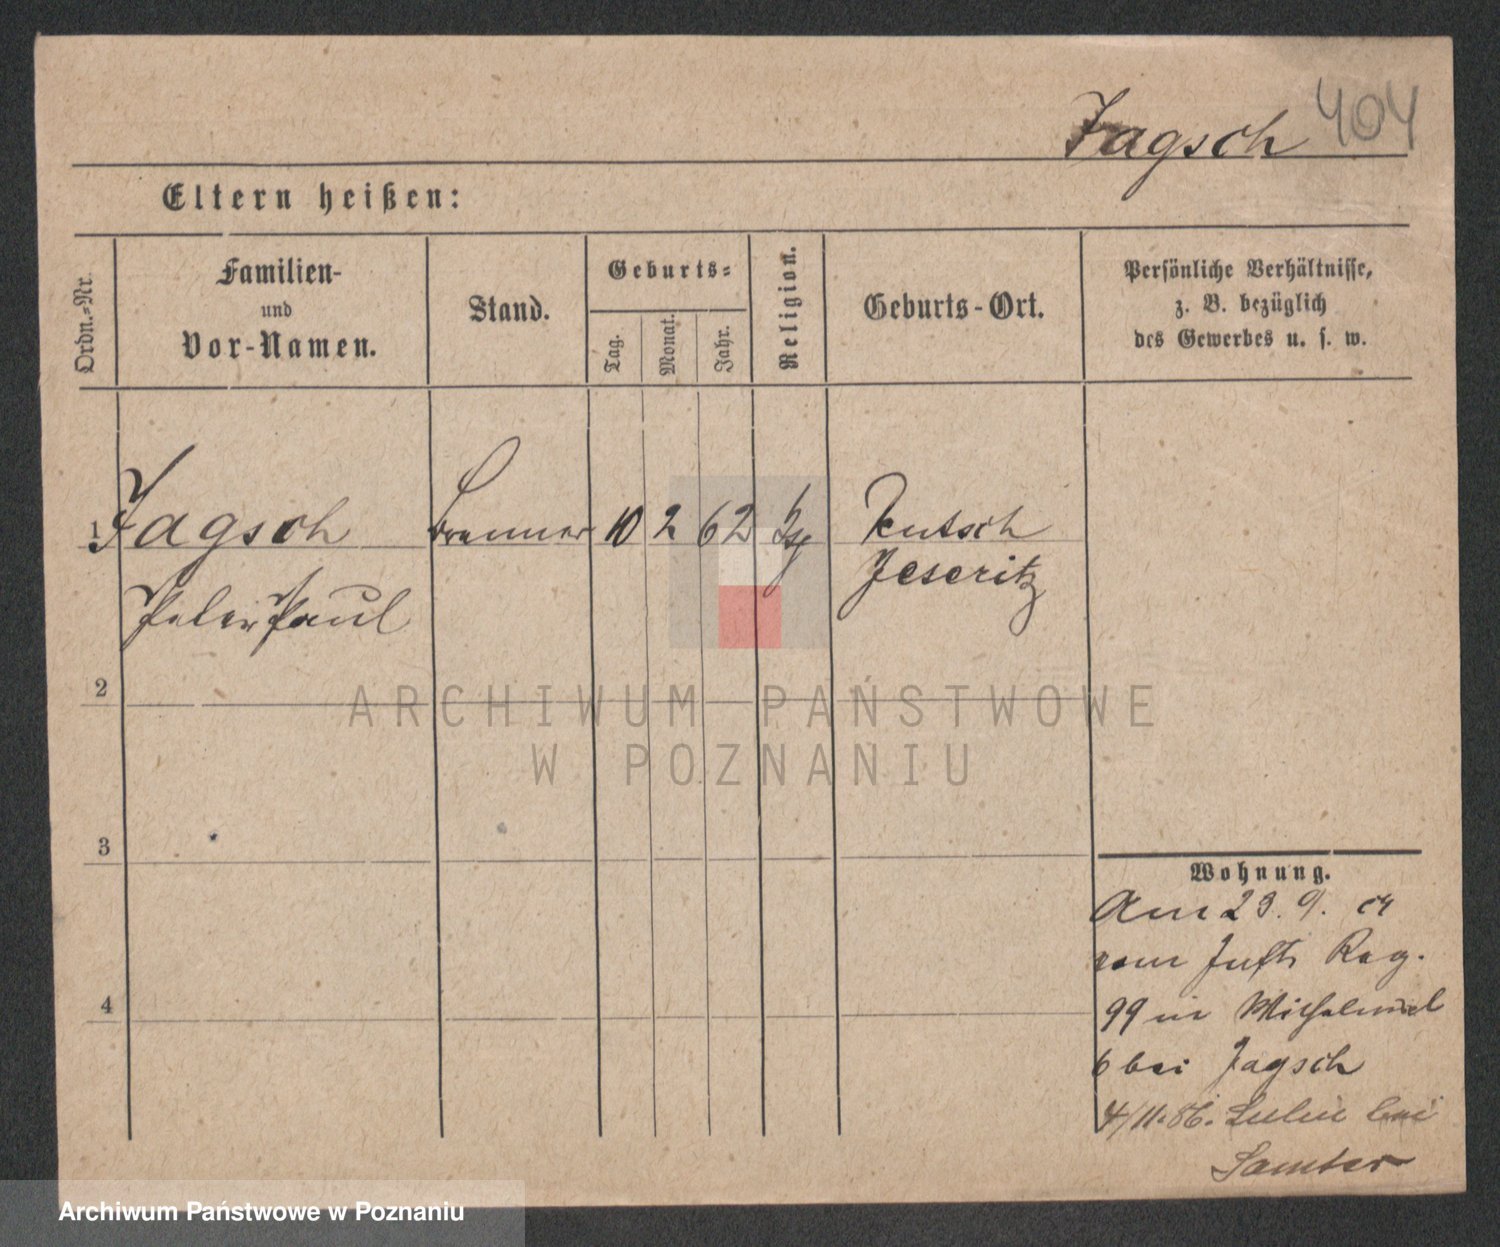 Jagsch 404
Eltern heißen:
Ordn.-Nr.
Familien-
und
Vor-Namen.
Stand.
Geburts-
Tag.
Monat.
Jahr.
Religion.
Geburts-Ort.
Persönliche Verhältnisse,
z. B. bezüglich
des Gewerbes u. s. w.
1 Jagsch Brenner 10 2 62 Deutsch
Peter Paul Jeseritz
2
ARCHIWUM PAŃSTWOWE
W POZNANIU
3
4
Wohnung.
Am 23. 9. 84
vom Reg.
99 in
6 bei Jagsch
4/11. 86. bei
Samter
Archiwum Państwowe w Poznaniu